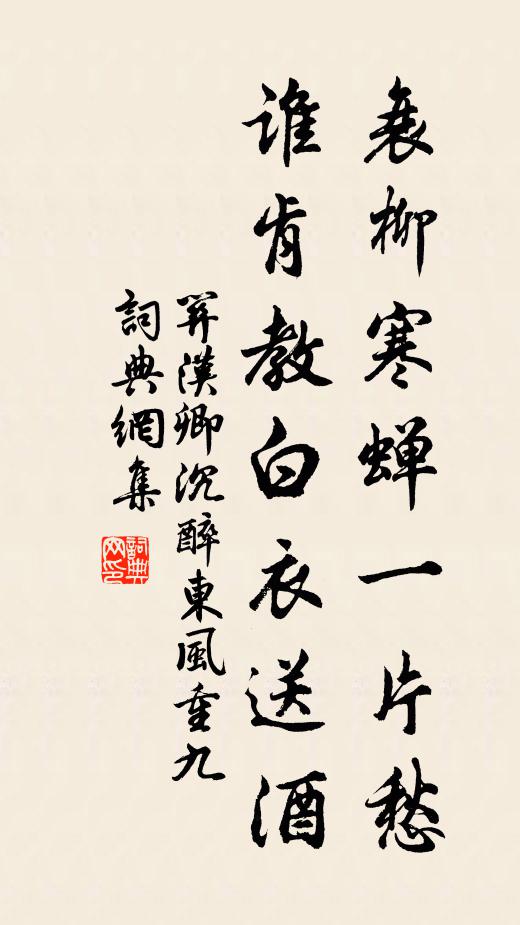 衰柳寒蝉一片愁
谁肯教白衣送酒
關漢卿沉醉東風重九
詞典網集
詞典网印